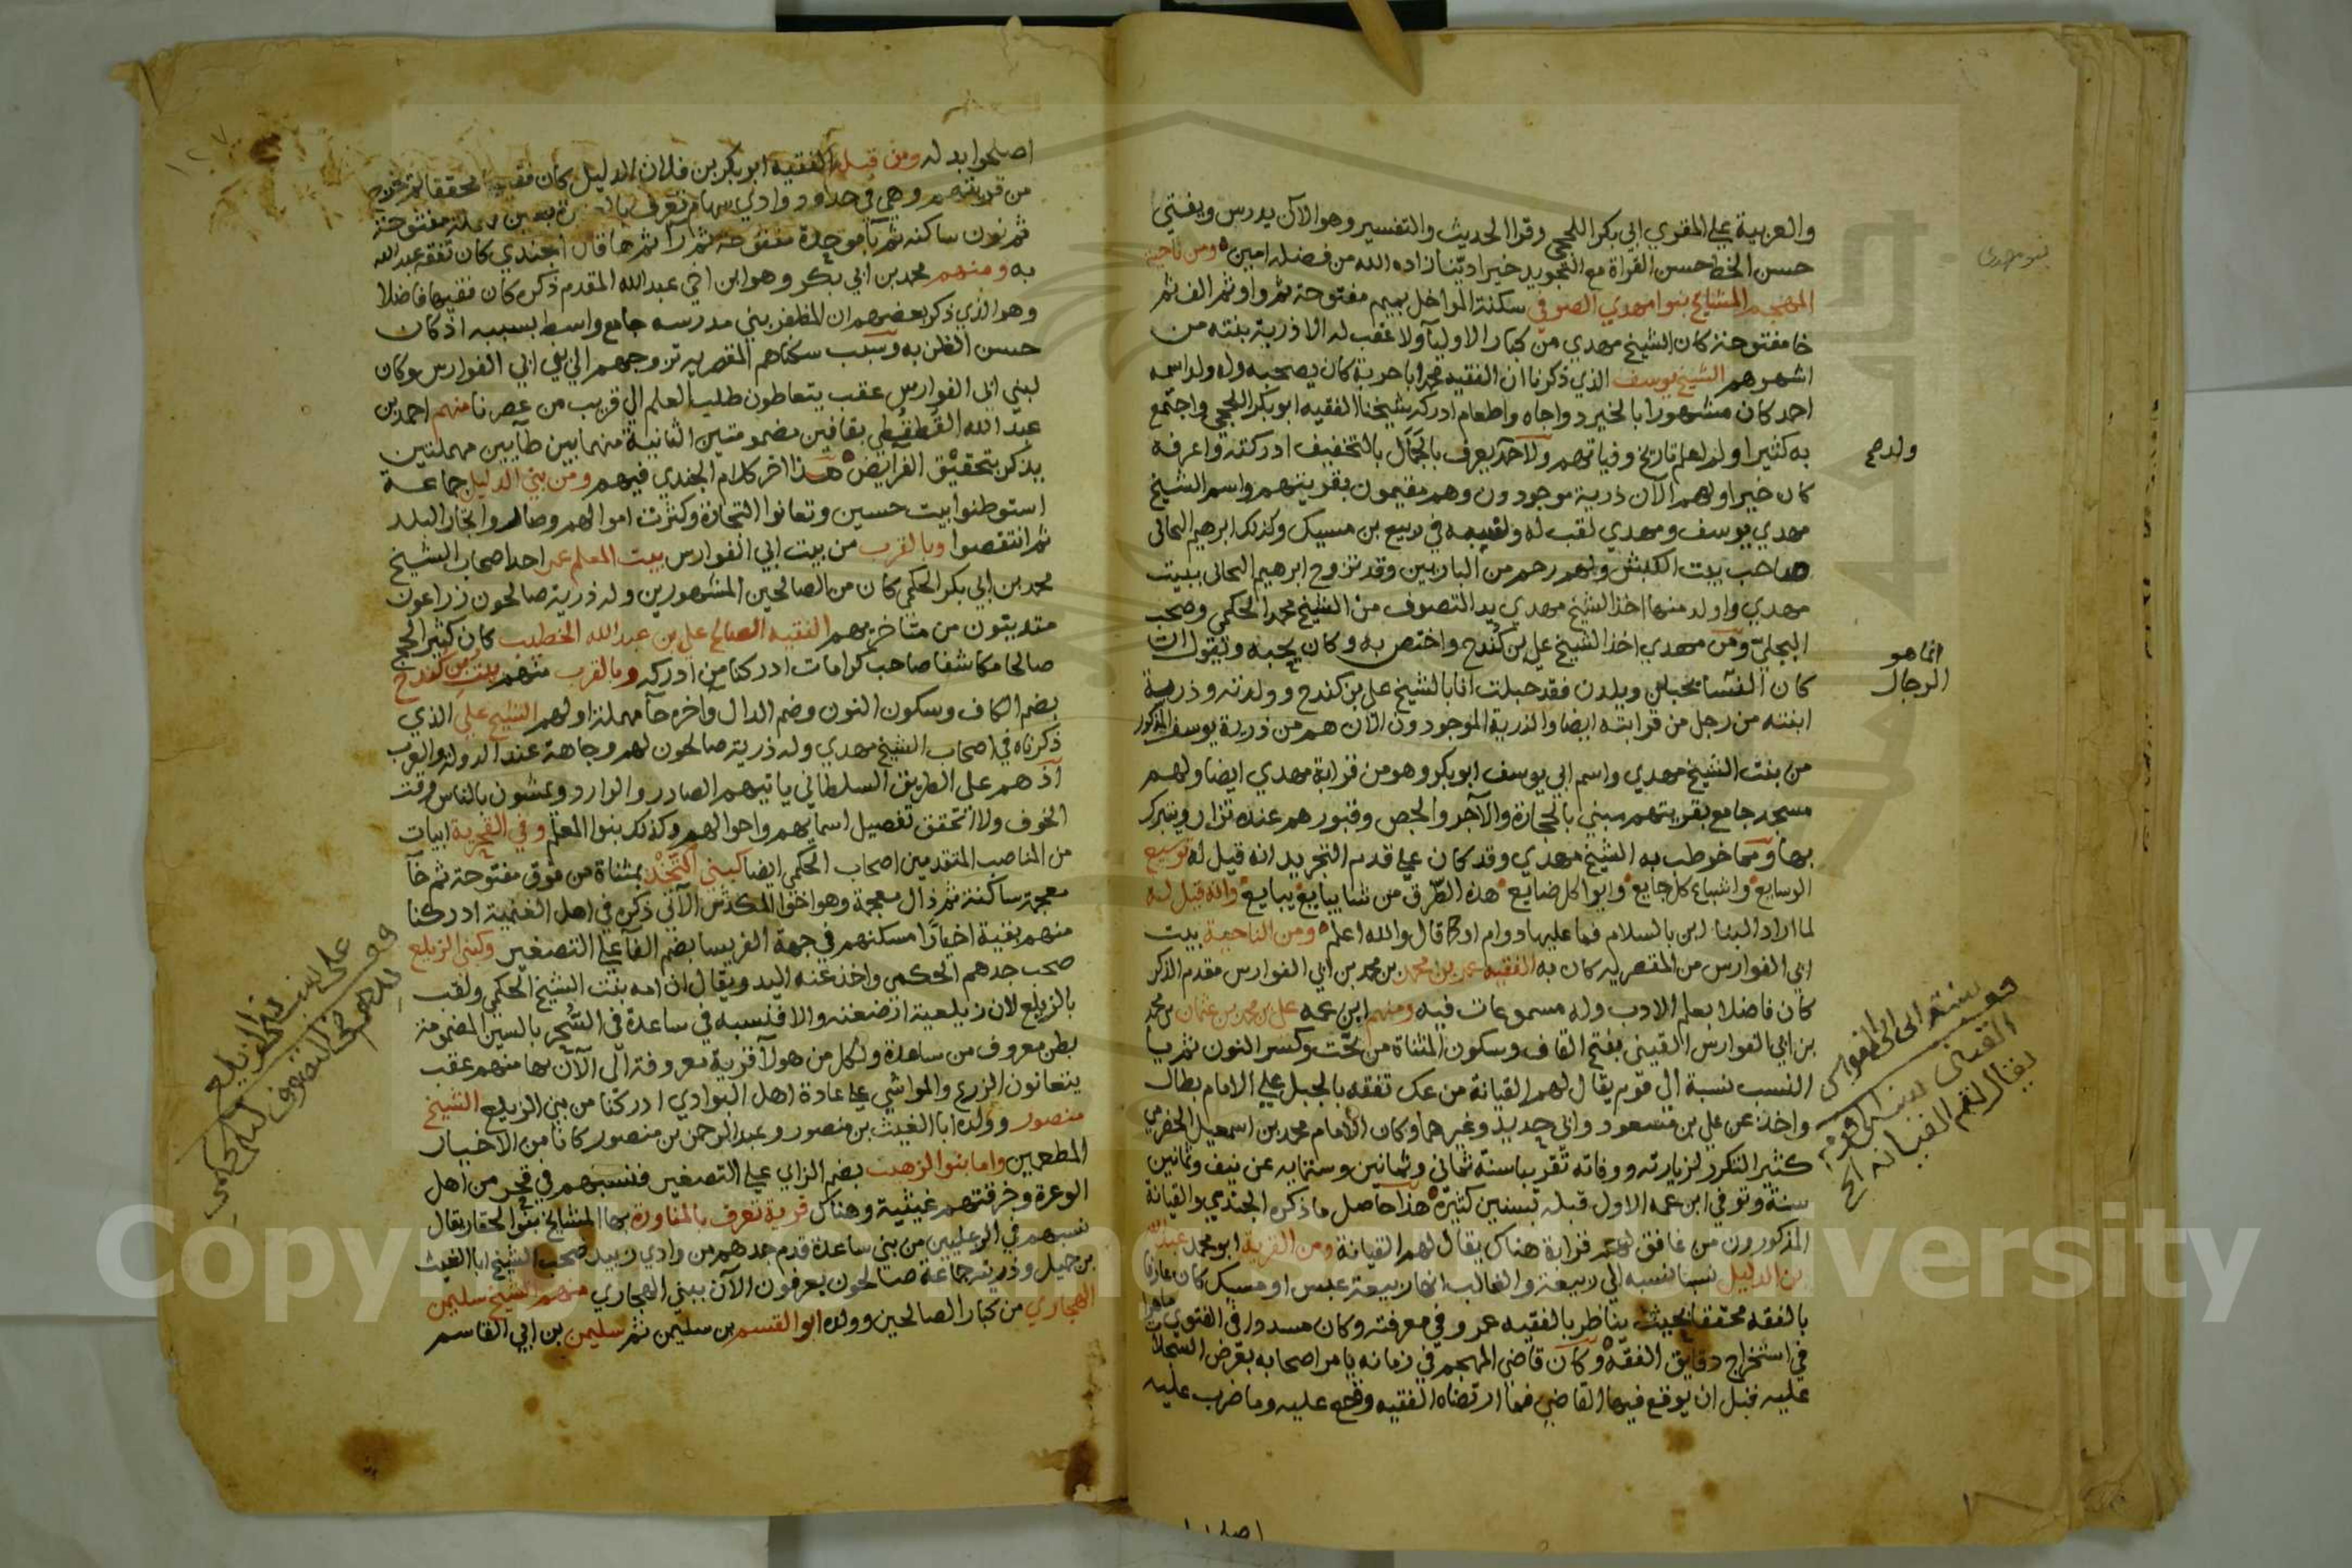 والعربية على المقري ابي بكر اللحجي وقرا الحديث والتفسير وهو الآن يدرس ويفتي
حسن الخط حسن القراة مع التجويد خيرا ديّنا زاده الله من فضله امين ومن ناحية
المهجم المشايخ بنوا مهدي الصوفي سكنة المواخل بميم مفتوحة ثم واو ثم الف ثم
خا مفتوحة كان الشيخ مهدي من كبار الاوليآ ولا عقب له الا ذرية بنته من
اشهرهم الشيخ يوسف الذي ذكرنا ان الفقيه محمد ابا حربة كان يصحبه وله ولد اسمه
احمد كان مشهورا بالخير وواجاه واطعام ادركه شيخنا الفقيه ابو بكر اللحجي واجتمع
به كثيرا ولم نعلم تاريخ وفياتهم ولاحمد يعرف بالجمال بالتخفيف ادركته واعرفه
كان خيرا ولهم الآن ذرية موجودون وهم مقيمون بقريتهم واسم الشيخ
مهدي يوسف ومهدي لقب له ونسبه في ربيع بن مسيك وكذلك ابرهيم البجالي
صاحب بيت الكبش ولهم رحم من البارين وقد تزوج ابرهيم البجالي ببنت
مهدي واولد منها اخذ الشيخ مهدي يد التصوف من الشيخ محمد الحكمي وصحب
البجلي ومن مهدي اخذ الشيخ علي بن كندح واختص به وكان يحبه ويقول ان
كان النسا يحبلن ويلدن فقد حبلت انا بالشيخ علي بن كندح وولدته وذرية
ابنته من رجل من قرابته ايضا والذرية الموجودون الآن هم من ذرية يوسف المذكور
من بنت الشيخ مهدي واسم ابي يوسف ابو بكر وهو من قرابة مهدي ايضا ولهم
مسجد جامع بقريتهم مبني بالحجارة والآجر والجص وقبورهم عنده تزار ويتبرك
بها ومما خوطب به الشيخ مهدي وقد كان على قدم التجريد انه قيل له توسيع
الوسايع واشباع كل جايع وايوا كل ضايع هذه الطرق من شا يبايع يبايع وانه قيل له
لما اراد البنا ابن بالسلام فما عليها دوام اوكما قال والله اعلم ومن الناحية بيت
ابي الفوارس من المقصرية كان به الفقيه عمر بن محمد بن محمد بن ابي الفوارس مقدم الذكر
كان فاضلا بعلم الادب وله مسموعات فيه ومنهم ابن عمه علي بن محمد بن عثمان بن محمد
بن ابي الفوارس القيني بفتح القاف وسكون المثناة من تحت وكسر النون ثم يا
النسب نسبة الى قوم يقال لهم القيانة من عك تفقه بالجبل على الامام بطال
واخذ عن علي بن مسعود وابي حديد وغيرهما وكان الامام محمد بن اسمعيل الحضرمي
كثير التكرر لزيارته ووفاته تقريبا سنة ثماني وثمانين وستمايه عن نيف وثمانين
سنة وتوفي ابن عمه الاول قبله بسنين كثيرة هذا حاصل ما ذكره الجندي والقيانة
المذكورون من غافق لهم قرابة هناك يقال لهم القيانة ومن القرية ابو محمد عبد الله
بن الدليل نسبا نسبه الى ربيعة والغالب انها ربيعة عبس او مسيك كان عارفا
بالفقه محققا بحيث يناظر بالفقيه عمرو في معرفته وكان مسددا في الفتوى ماهرا
في استخراج دقايق الفقه وكان قاضي المهجم في زمانه يامر اصحابه بعرض السجلات
عليه قبل ان يوقع فيها القاضي فما ارتضاه الفقيه وقع عليه وما ضرب عليه
بنو مهدي
ولده
انما هو
الرجال
القيني نسبة الى قوم
يقال لهم القيانة الخ
اصلحوا
اصلحوا بدله ومن قبله الفقيه ابو بكر بن فلان الدليل كان فقيها محققا
من قريتهم وهي في حدود وادي سهام تعرف بعين مهملة مفتوحة
ثم نون ساكنه ثم بآ موحدة مفتوحة ثم رآ ثم ها قال الجندي كان تفقه عبد الله
به ومنهم محمد بن ابي بكر وهو ابن اخي عبد الله المقدم ذكره كان فقيها فاضلا
وهو الذي ذكر بعضهم ان المظفر بنى مدرسه جامع واسط بسببه اذ كان
حسن الظن به وسبب سكناهم المقصريه تزوجهم الى بني ابي الفوارس وكان
لبني ابي الفوارس عقب يتعاطون طلب العلم الى قريب من عصرنا منهم احمد بن
عبد الله القُطقُطي بقافين مضمومتين الثانية منهما بين طآيين مهملتين
يذكر بتحقيق الفرايض هذا اخر كلام الجندي فيهم ومن بني الدليل جماعة
استوطنوا بيت حسين وتعانوا التجارة وكثرت اموالهم وصاروا تجار البلد
ثم انتقصوا وبالقرب من بيت ابي الفوارس بيت المعلم عمر احد اصحاب الشيخ
محمد بن ابي بكر الحكمي كان من الصالحين المشهورين وله ذرية صالحون زراعون
متدينون من متاخريهم الفقيه الصالح علي بن عبد الله الخطيب كان كثير الحج
صالحا مكاشفا صاحب كرامات ادركنا من ادركه وبالقرب منهم بيت بن كندح
بضم الكاف وسكون النون وضم الدال واخره حآ مهملة اولهم الشيخ علي الذي
ذكرناه في اصحاب الشيخ مهدي وله ذرية صالحون لهم وجاهة عند الدولة والعرب
اذ هم على الطريق السلطاني ياتيهم الصادر والوارد ويمشون بالناس وقت
الخوف ولا اتحقق تفصيل اسمايهم واحوالهم وكذلك بنوا المعلم وفي القحرية ابيات
من المناصب المتقدمين اصحاب الحكمي ايضا كبني التَخْذ بمثناة من فوق مفتوحة ثم خآ
معجمة ساكنة ثم ذال معجمة وهو اخو المكدش الآتي ذكره في اهل الغنمية ادركنا
منهم بقية اخيارا مسكنهم في جهة الفريسا بضم الفآ على التصغير وكبني الزيلع
صحب جدهم الحكمي واخذ عنه اليد ويقال ان امه بنت الشيخ الحكمي ولقب
بالزيلع لان زيلعية ارضعته والا فنسبه في ساعدة في السُّحر بالسين المضمومة
بطن معروف من ساعدة ولكل من هولآ قرية معروفة الى الآن بها منهم عقب
يتعانون الزرع والمواشي على عادة اهل البوادي ادركنا من بني الزيلع الشيخ
منصور وولده ابا الغيث بن منصور وعبد الرحمن بن منصور كانا من الاخيار
المطعمين واما بنوا الزهيب بضم الزاي على التصغير فنسبهم في قحر من اهل
الوعرة وخرقتهم غيثية وهناك قرية تعرف بالمغاورة بها المشايخ بنوا الحقار يقال
نسبهم في الرعليين من بني ساعدة قدم جدهم من وادي زبيد صحب الشيخ ابا الغيث
بن جميل وذريته جماعة صالحون يعرفون الآن ببني الهجاري منهم الشيخ سليمن
الهجاري من كبار الصالحين وولده ابو القسم بن سليمن ثم سليمن بن ابي القاسم
على نسب بنو الزيلع